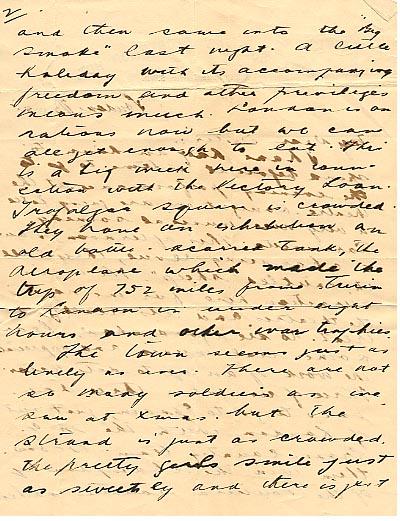 2/
and then came into the "big
smoke" last night. A little
holiday with its accompanying
freedom and other privileges
means much. London is on
rations now but we can
all get enough to eat. This
is a big week here in conn-
ection with the Victory Loan.
Trafalgar Square is crowded.
They have on exhibition an
old battle-scarred tank, the
aeroplane which made the
trip of 752 miles from Turin
to London in under eight
hours and other war trophies
The town seems just as
lively as ever. There are not
so many soldiers as we
saw at Xmas but the
Strand is just as crowded,
the pretty girls smile just
as sweetly and there is just